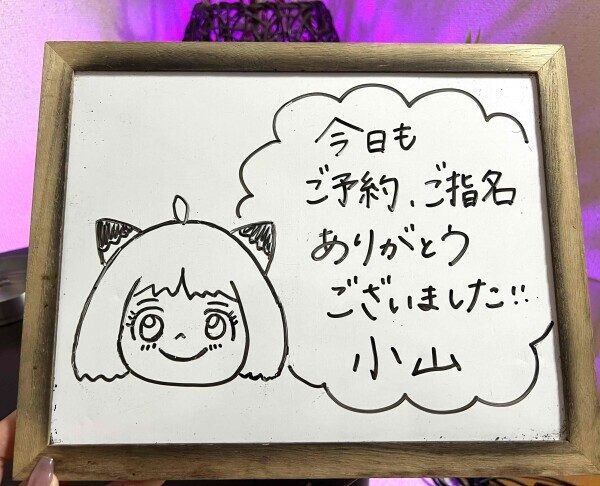 今日も
ご予約、ご指名
ありがとう
ございました!!
小山